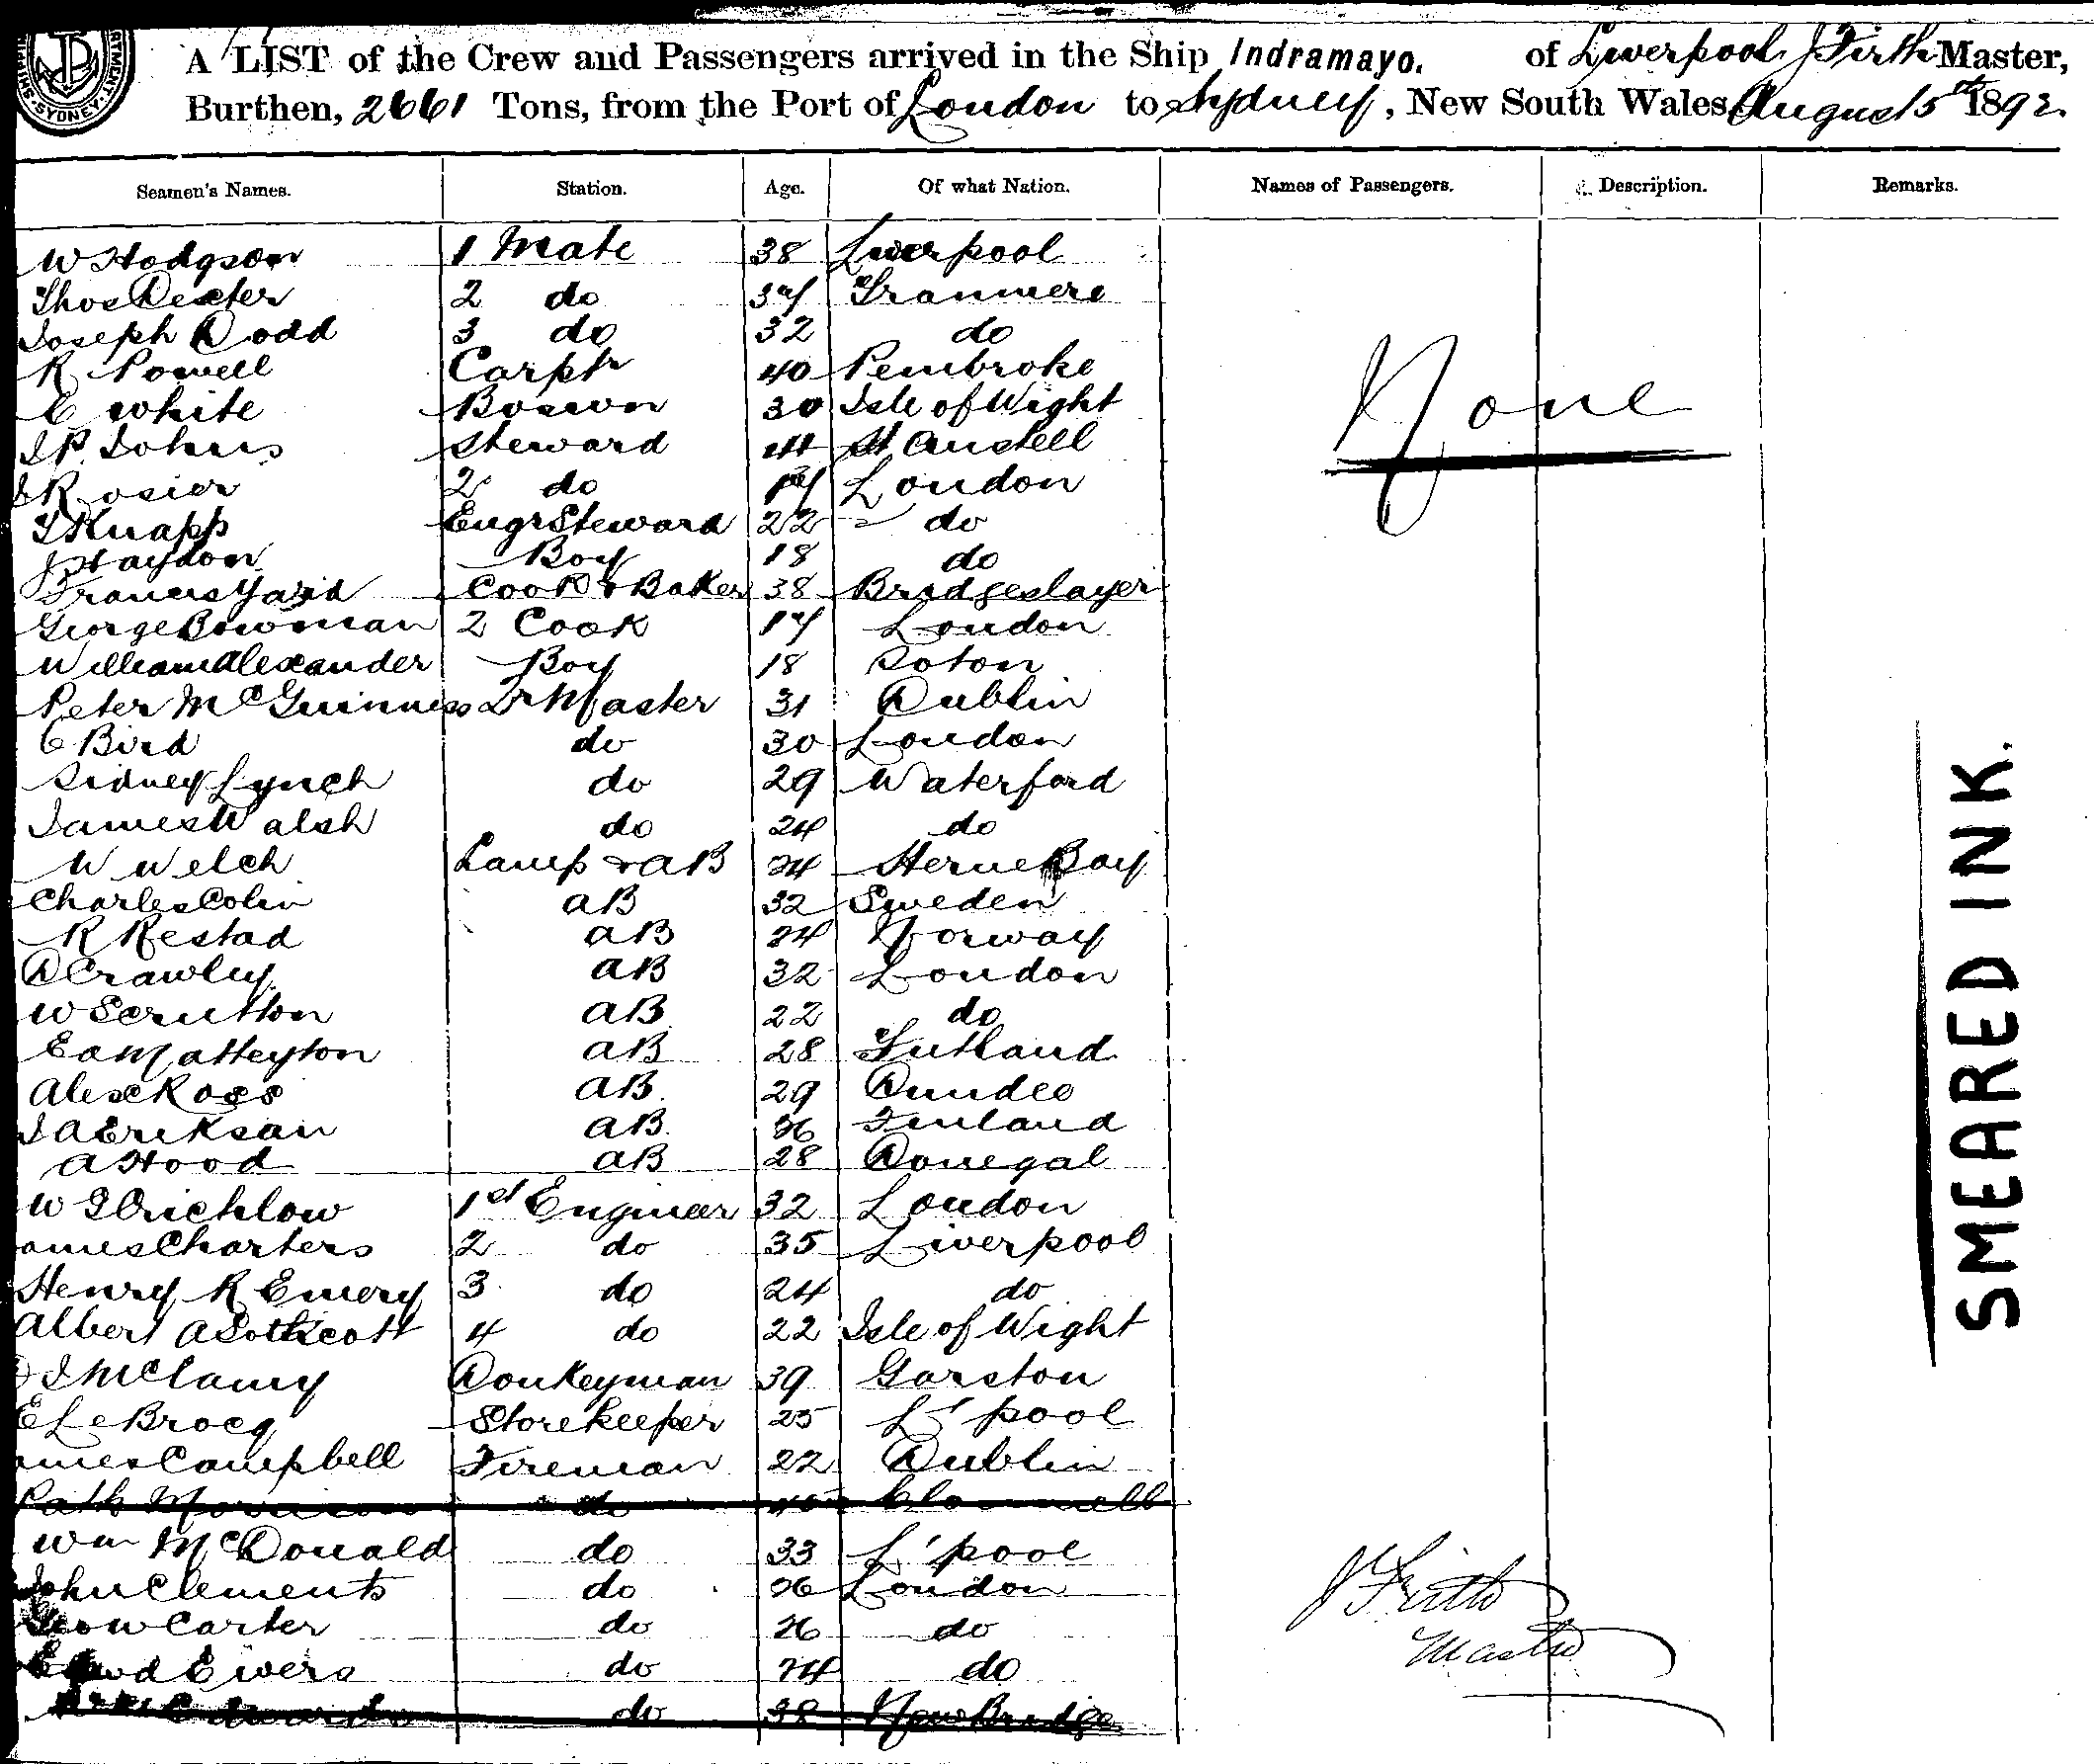 A LIST of the Crew and Passengers arrived in the Ship Indramayo. of Liverpool J Firth Master,
Burthen, 2661 Tons, from the Port of London to Sydney, New South Wales, August 5th 1892.
Seamen's Names. Station. Age. Of what Nation. Names of Passengers. Description. Remarks.
W Hodgson 1 Mate 38 Liverpool
Thos Dexter 2 do 37 Tranmere
Joseph Dodd 3 do 32 do
R Powell Carptr 40 Pembroke
E White Boswn 30 Isle of Wight
J P Johns Steward 44 St Austell
J Rosier 2 do 17 London
T Knapp Engr Steward 22 do
J Haydon Boy 18 do
Francis Cook & Baker 38
George Bowman 2 Cook 17 London
William Alexander Boy 18 Soton
Peter McGuinness Qr Master 31 Dublin
C Bird do 30 London
Sidney Lynch do 29 Waterford
James Walsh do 24 do
W Welch Lamp & AB 24 Herne Bay
Charles Colin AB 32 Sweden
R Restad AB 24 Norway
D Crawley AB 32 London
W Scrutton AB 22 do
AB 28 Jutland
Alex Ross AB. 29 Dundee
J A Eriksan AB. 26 Finland
A Hood AB 28 Donegal
W G Crichlow 1st Engineer 32 London
ames Charters 2 do 35 Liverpool
Henry R Emery 3 do 24 do
Albert A Sothcott 4 do 22 Isle of Wight
J McClamy Donkeyman 39 Garston
E Le Brocq Storekeeper 25 L'pool
ames Campbell Fireman 22 Dublin
Patk Morrison do 45 Clonmell
Wm McDonald do 33 L'pool
John Clements do 26 London
Geo W Carter do 26 do
Edwd Ewers do 24 do
Edwards do 38 New Bridge
None
J Firth
Master
SMEARED INK.